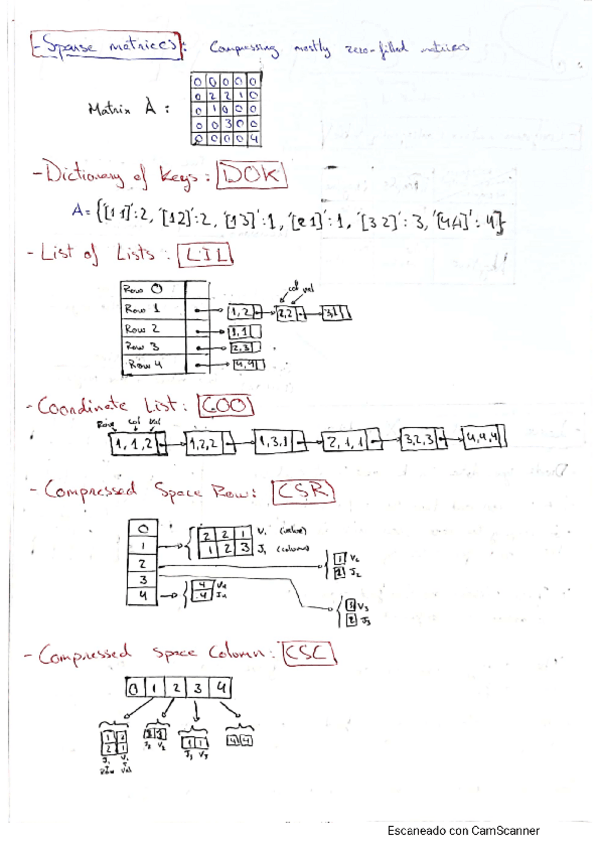 - Sparse matrices: Compressing mostly zero-filled matrices
Matrix A:
0 0 0 0 0
0 2 2 1 0
0 1 0 0 0
0 0 3 0 0
0 0 0 0 4
- Dictionary of Keys: DOK
A = {'[1 1]':2, '[1 2]':2, '[1 3]':1, '[2 1]':1, '[3 2]':3, '[4,4]':4}
- List of Lists: LIL
Row 0
col val
Row 1 1,2 2,2 3,1
Row 2 1,1
Row 3 2,3
Row 4 4,4
- Coordinate List: COO
Row col val
1,1,2 1,2,2 1,3,1 2,1,1 3,2,3 4,4,4
- Compressed Space Row: CSR
0
1 2 2 1 V1 (value)
1 2 3 J1 (column)
2 1 V2
J2
3
4 4 V4
4 J4
V3
2 J3
- Compressed Space Column: CSC
0 1 2 3 4
1
2 1
J1 V1
Row Val
J2 V2
1 1
J3 V3
4 4
Escaneado con CamScanner